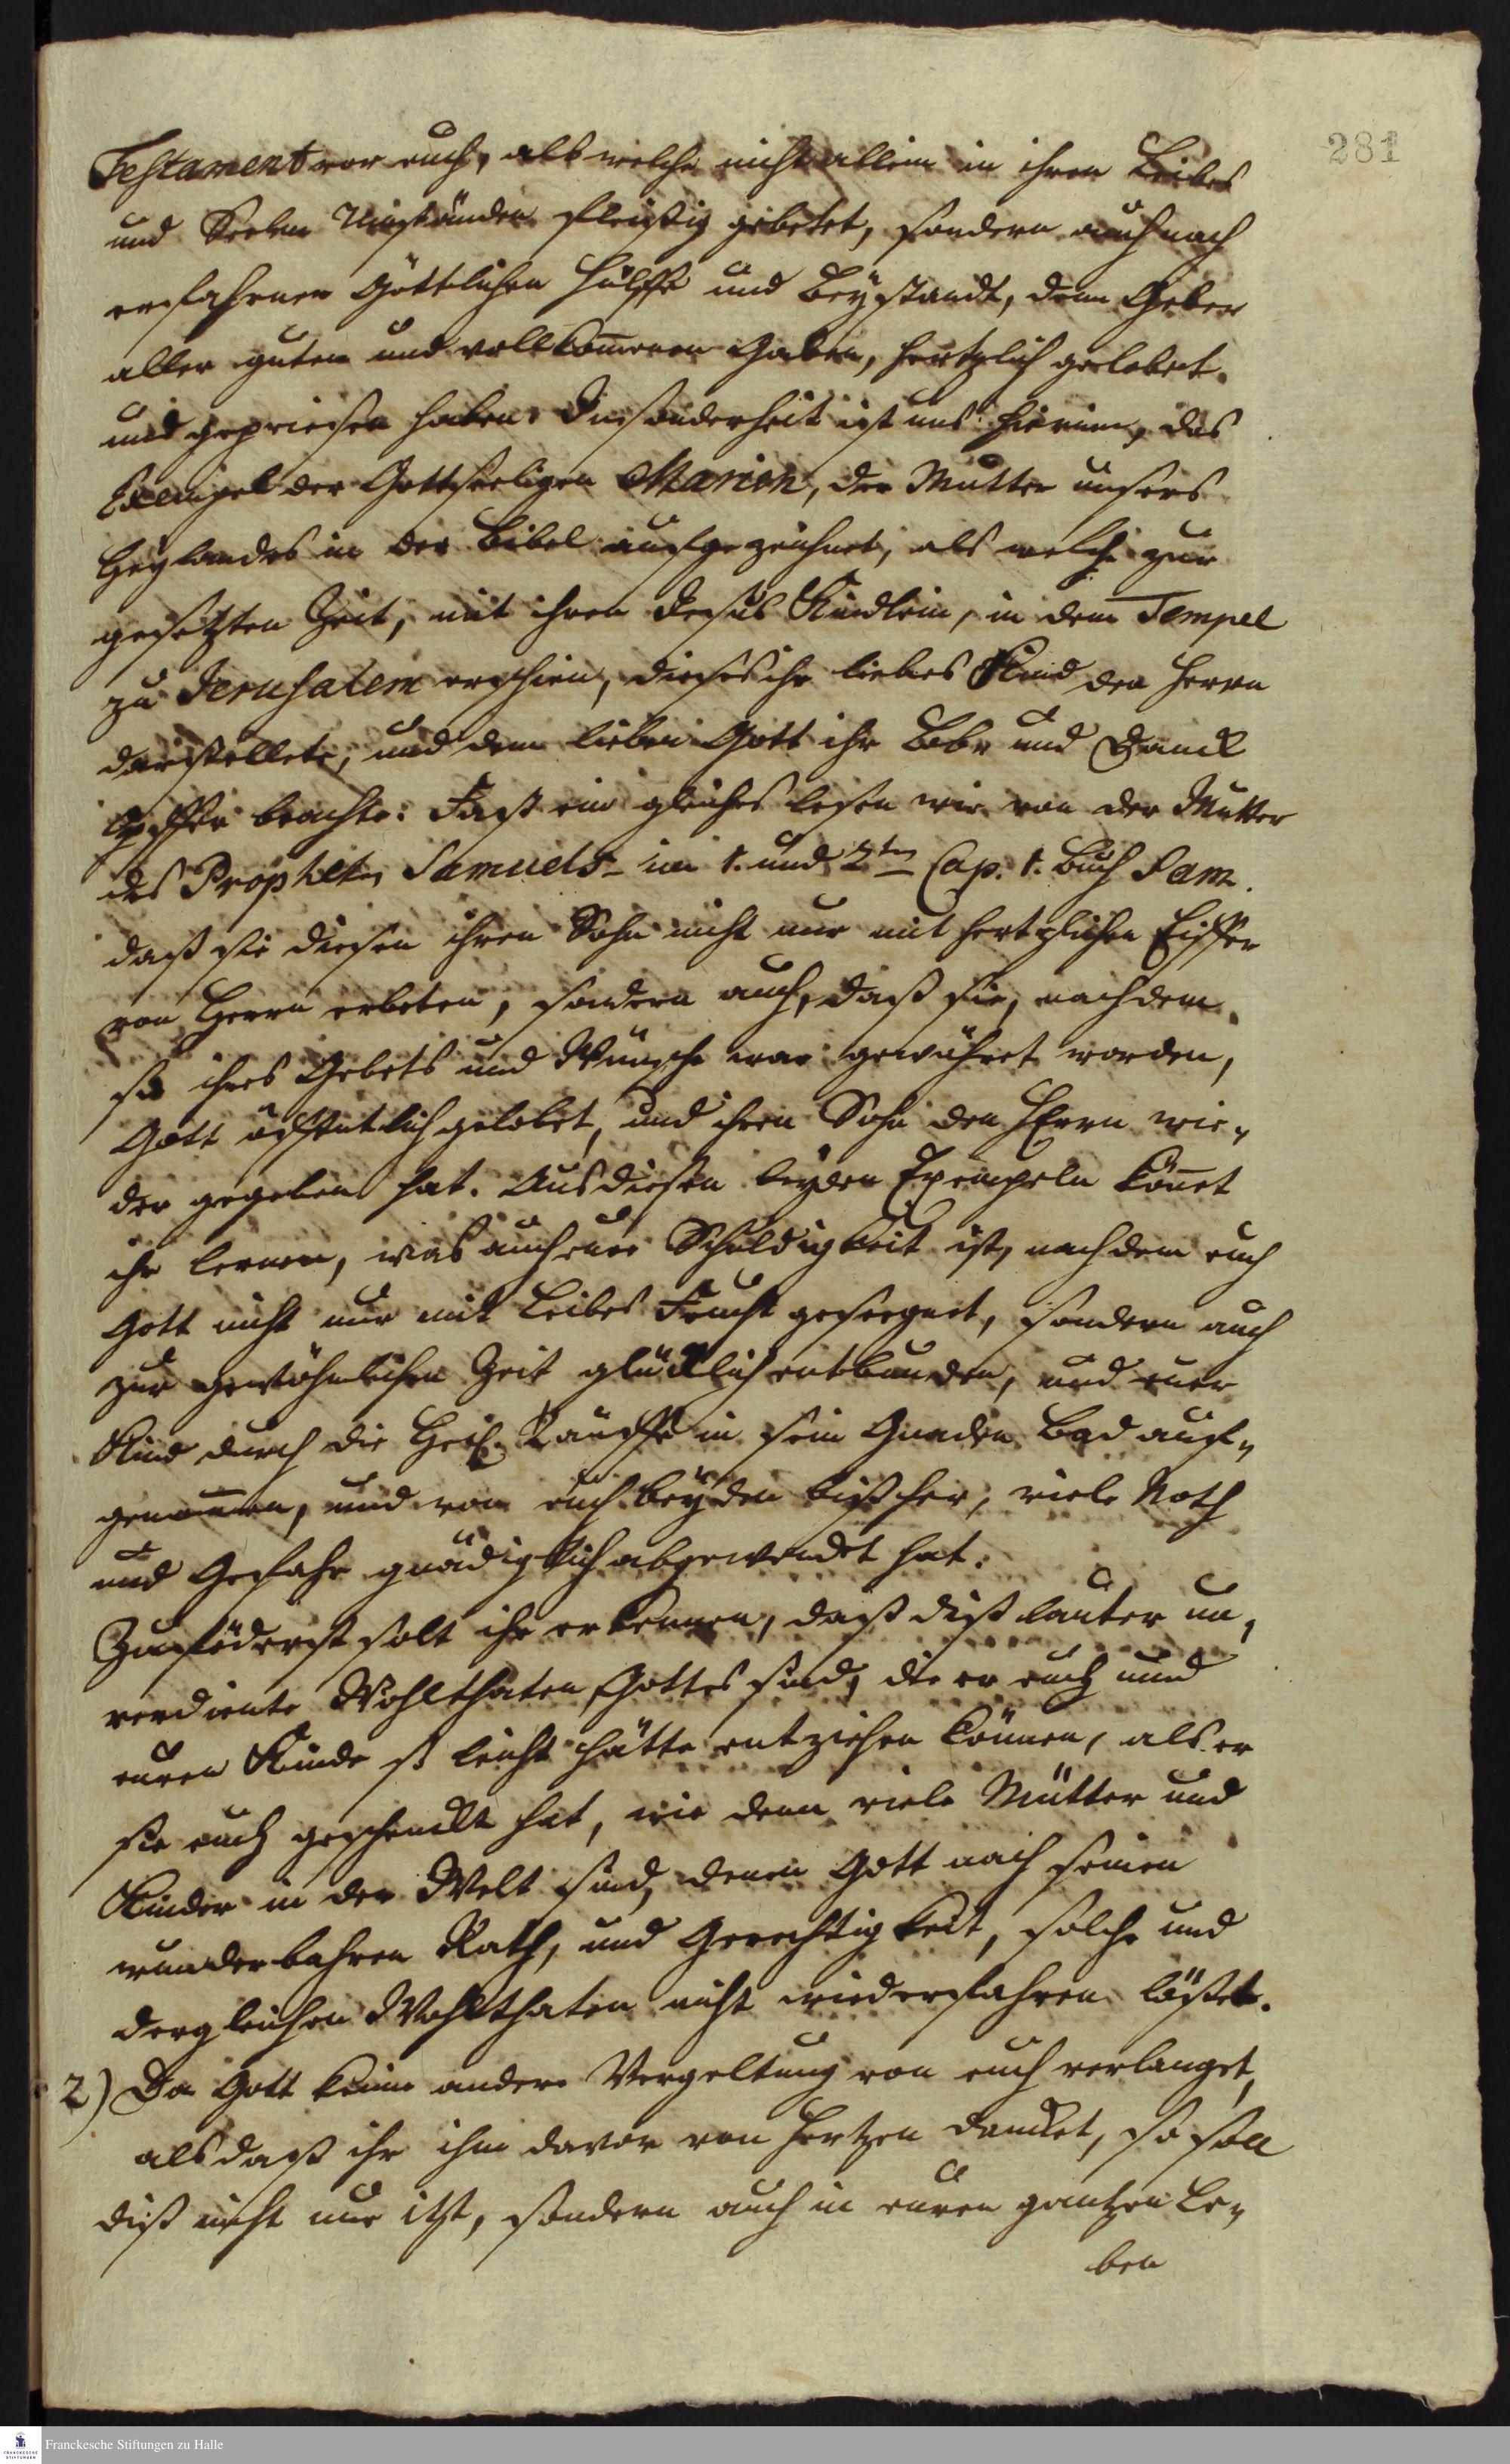 281
Testament vor euch, als welche nicht allein in ihren Leibes
und Seelen Umständen fleißig gebetet, sondern auch nach
erfahrner Göttlichen Hülffe und Beystandt, dem Geber
aller guten und vollkom̄enen Gaben, hertzlich gelobet
und gepriesen haben. Insonderheit ist uns hierinn, das
Exempel der Gottseeligen Marien, der Mutter unsers
Heylandes in der Bibel aufgezeichnet, als welche zur
gesetzten Zeit, mit ihren Jesus Kindlein, in dem Tempel
zu Jerusalem erschien, dieses ihr liebes Kind den Herrn
darstellete, und dem lieben Gott ihr Lob und Danck
Opffer brachte: Fast ein gleiches lesen wir von der Mutter
des Propheten Samuels im 1. und 2ten Cap. 1. Buch Sam.
daß sie diesen ihren Sohn nicht nur mit hertzlichen Eiffer
von Herrn erbeten, sondern auch, daß sie, nachdem
sie ihres Gebets und Wunsche war gewähret worden,
Gott öffentlich gelobet, und ihren Sohn den HErrn wie-
der gegeben hat. Aus diesen beyden Exempeln kön̄et
ihr lernen, was auch eure Schuldigkeit ist, nachdem euch
Gott nicht nur mit Leibes Frucht geseegnet, sondern auch
zur gewöhnlichen Zeit glücklich entbunden, und euer
Kind durch die Heil. Tauffe in sein Gnaden Bad auf-
genom̄en, und von euch beyden bißher, viele Noth
und Gefahr gnädiglich abgewendet hat.
Zuföderst solt ihr erkennen, daß diß lauter un-
verdiente Wohlthaten Gottes sind, die er euch und
euren Kinde so leicht hätte entziehen können, als er
sie euch geschenckt hat, wie denn viele Mütter und
Kinder in der Welt sind, denen Gott nach seinen
wunderbahren Rath, und Gerechtigkeit, solche und
dergleichen Wohlthaten nicht wiederfahren läßet.
2) Da Gott keine andere Vergeltung von euch verlanget,
als daß ihr ihm davor von Hertzen dancket, so soll
diß nicht nur itzt, sondern auch in euren gantzen Le-
ben
Franckesche Stiftungen zu Halle